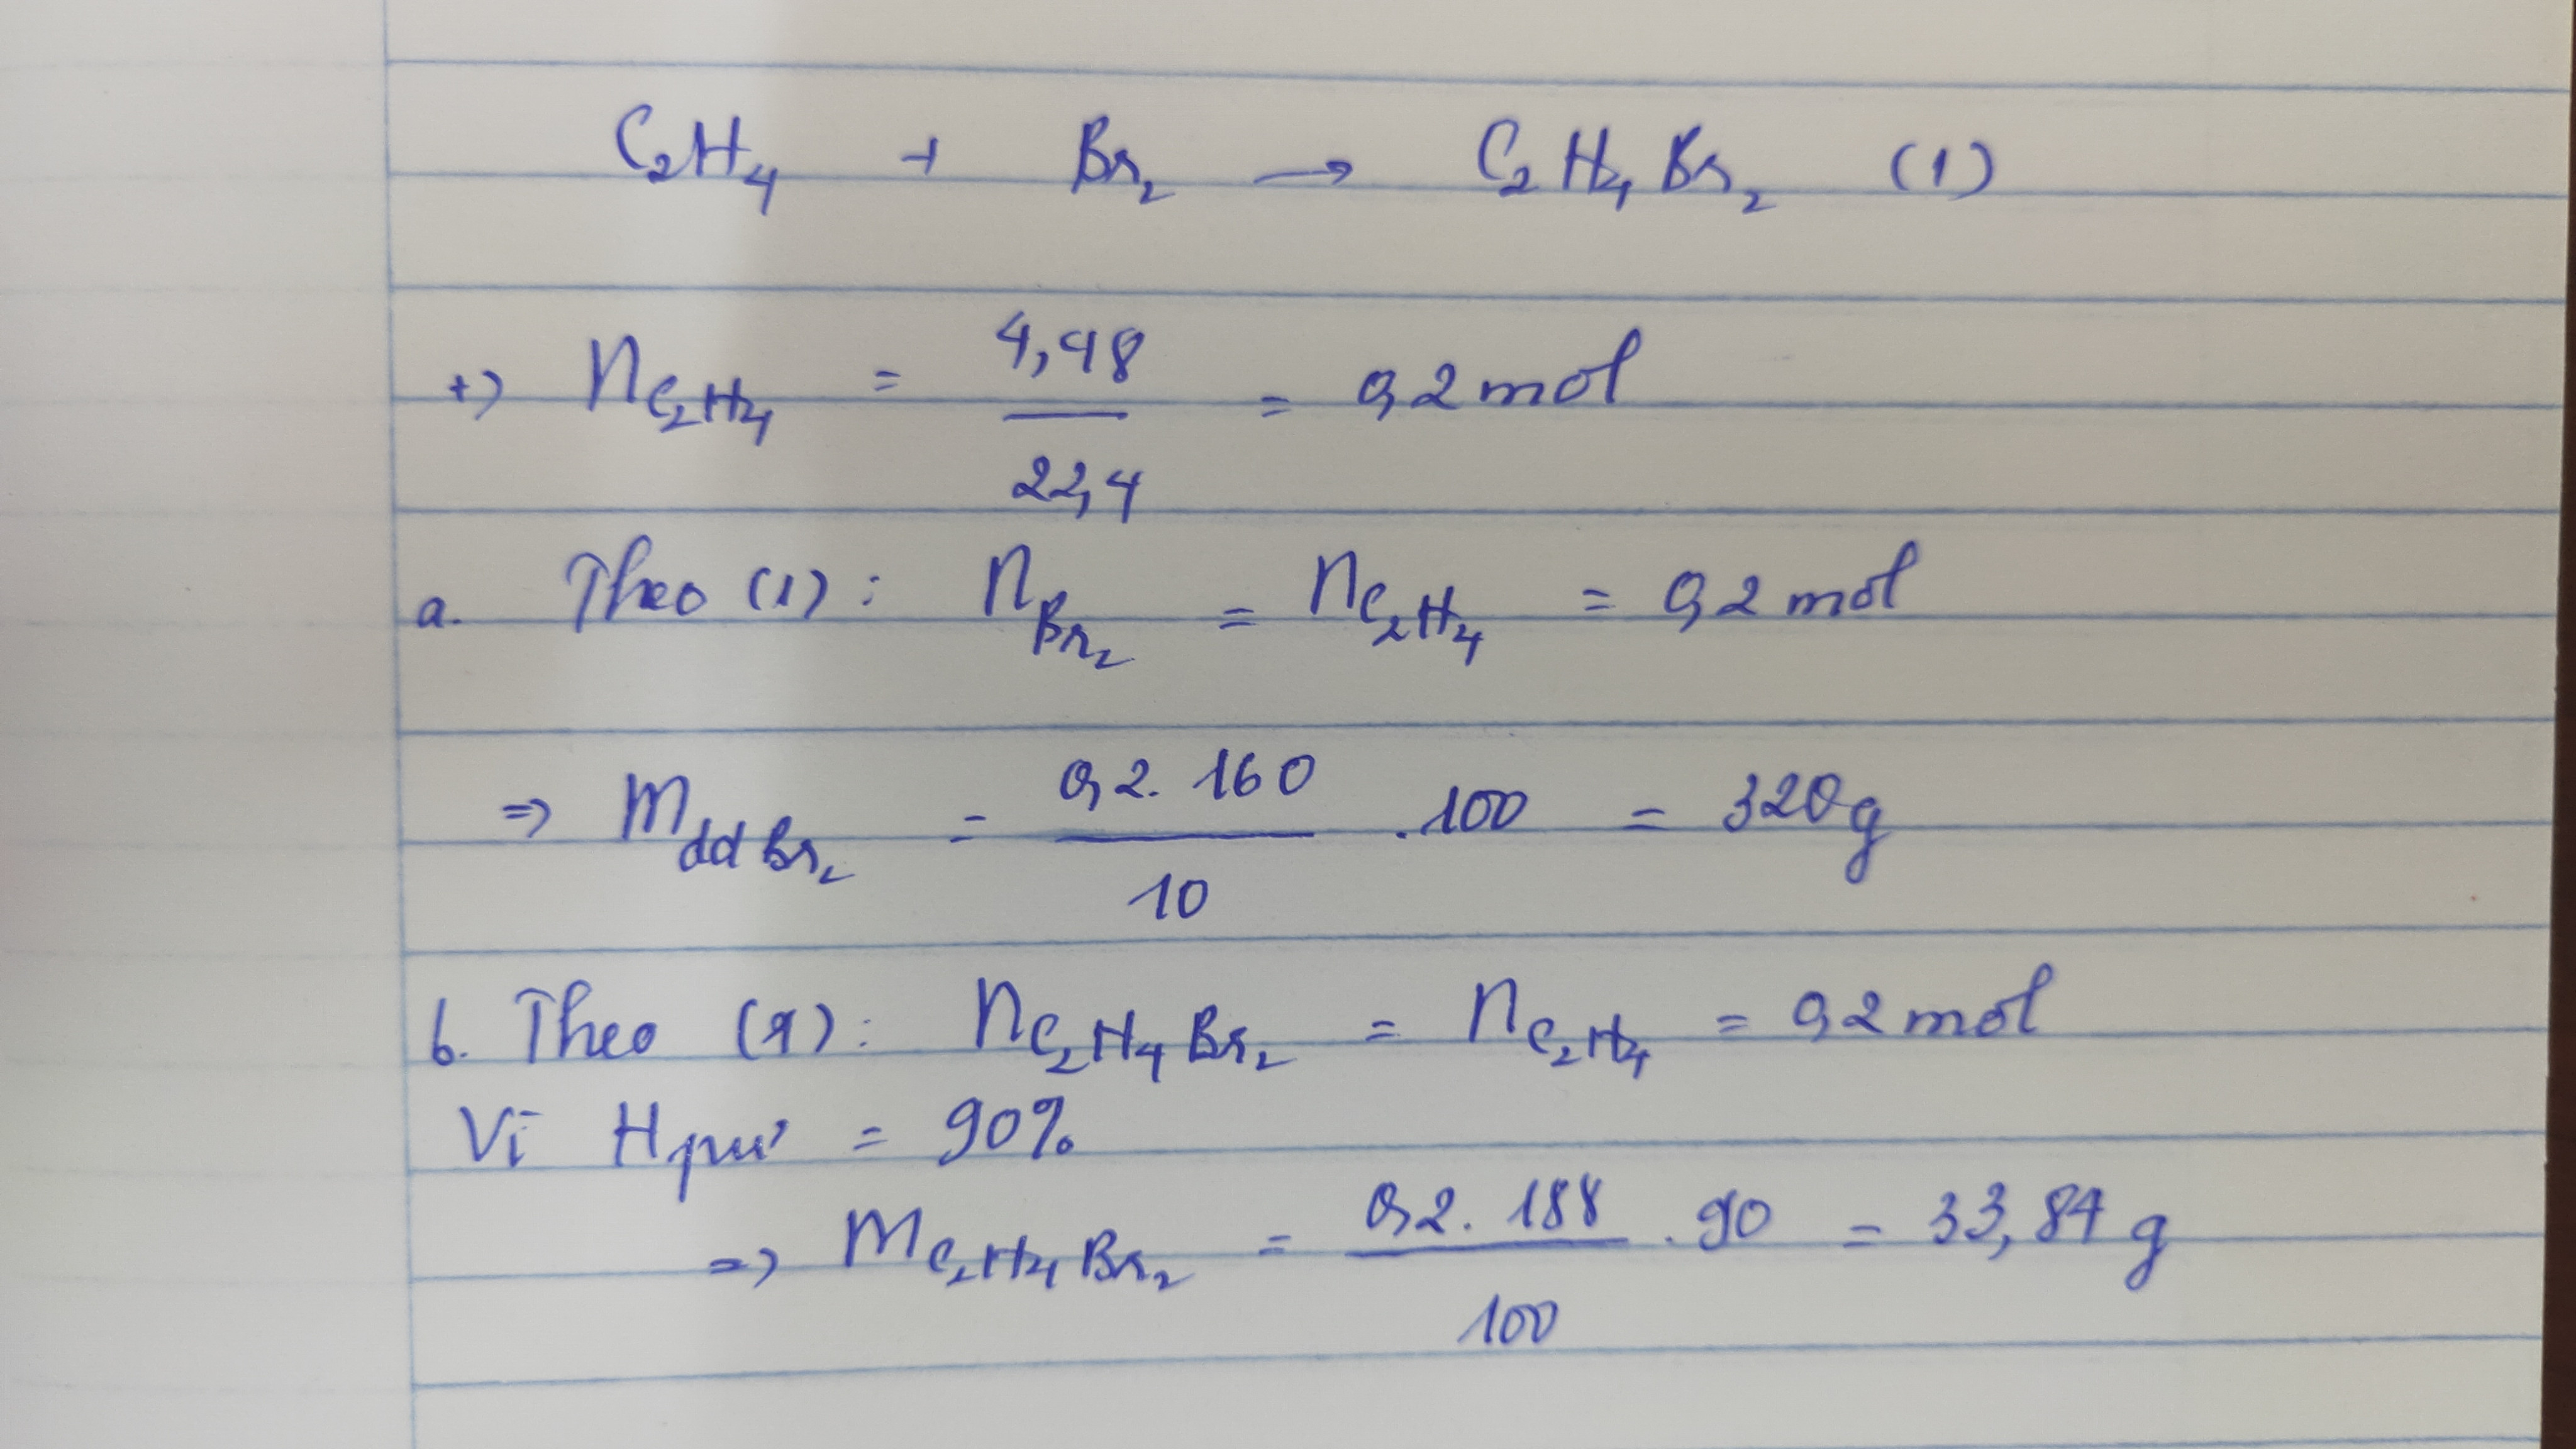 C₂H₄ + Br₂ → C₂H₄Br₂ (1)
+) n C₂H₄ = 4,48 / 22,4 = 0,2 mol
a. Theo (1): n Br₂ = n C₂H₄ = 0,2 mol
⇒ m dd Br₂ = 0,2. 160 / 10 . 100 = 320g
b. Theo (1): n C₂H₄Br₂ = n C₂H₄ = 0,2 mol
Vì Hpứ = 90%
=> m C₂H₄Br₂ = 0,2. 188 / 100 . 90 = 33,84 g